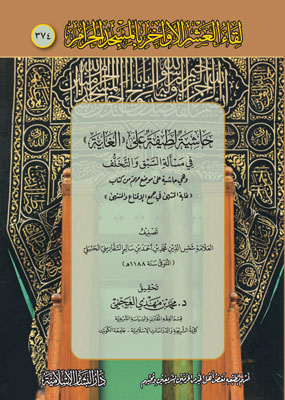 لقاء العشر الأواخر بالمسجد الحرام
٣٧٤
حاشية لطيفة على «الغاية»
في مسألة السبق والتخلف
وهي حاشية على موضع مهم من كتاب
«غاية المنتهى في جمع الإقناع والمنتهى»
تصنيف
العلامة شمس الدين محمد بن أحمد بن سالم السفاريني الحنبلي
(المتوفى سنة ١١٨٨ هـ)
تحقيق
د. محمد بن مهدي العجمي
قسم الفقه المقارن والسياسة الشرعية
كلية الشريعة والدراسات الإسلامية - جامعة الكويت
أسهم بطبعه بعض أهل الخير من الحرمين الشريفين ومحبيهم
دار البشائر الإسلامية